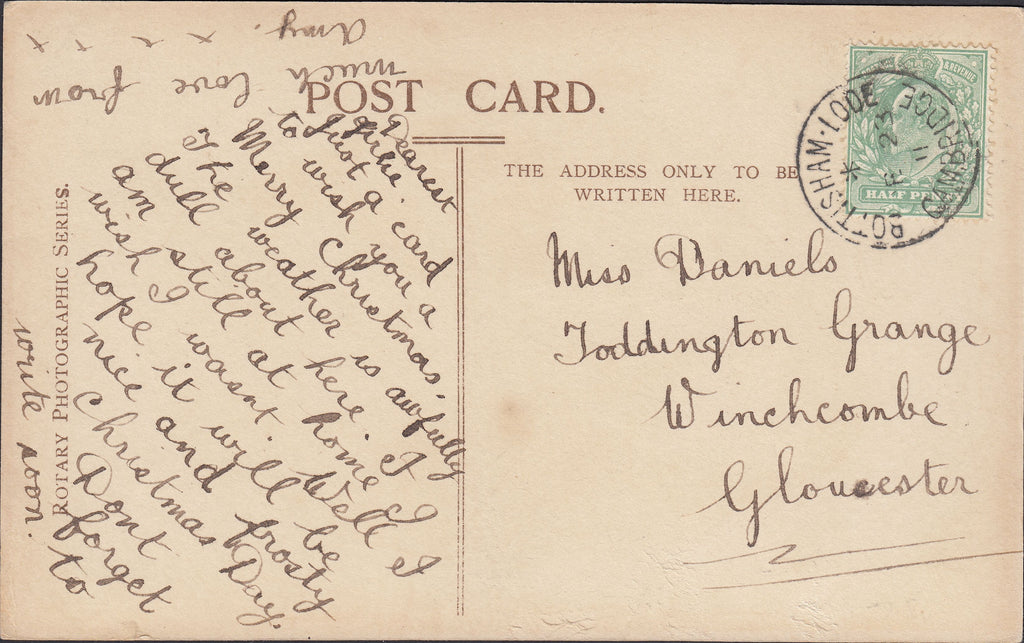 POST CARD.
THE ADDRESS ONLY TO BE
WRITTEN HERE.
ROTARY PHOTOGRAPHIC SERIES.
BOTTISHAM-LODE
CAMBRIDGE
HALF PE
Dearest
Just a card
to wish you a
Merry Christmas.
The weather is awfully
dull about here. I
am still at home I
wish I wasnt. Well I
hope it will be
nice and frosty
Christmas Day.
Dont
forget
to
write soon.
much love from
Amy.
x x x x
Miss Daniels
Toddington Grange
Winchcombe
Gloucester